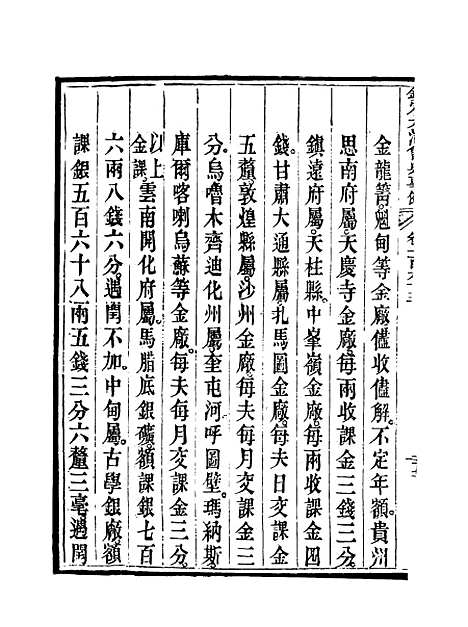 金龍箐慢甸等金廠儘收儘解不定年額貴州
思南府屬天慶寺金廠每兩收課金三錢三分
鎮遠府屬天柱縣中峯嶺金廠每兩收課金四
錢甘肅大通縣屬扎馬圖金廠每夫日交課金
五釐敦煌縣屬沙州金廠每夫每月交課金三
分烏嚕木齊迪化州屬奎屯河呼圖壁瑪納斯
庫爾喀喇烏蘇等金廠每夫每月交課金三分
以上金課雲南開化府屬馬腊底銀礦額課銀七百
六兩八錢六分遇閏不加中甸屬古學銀廠額
課銀五百六十八兩五錢三分六釐三毫遇閏